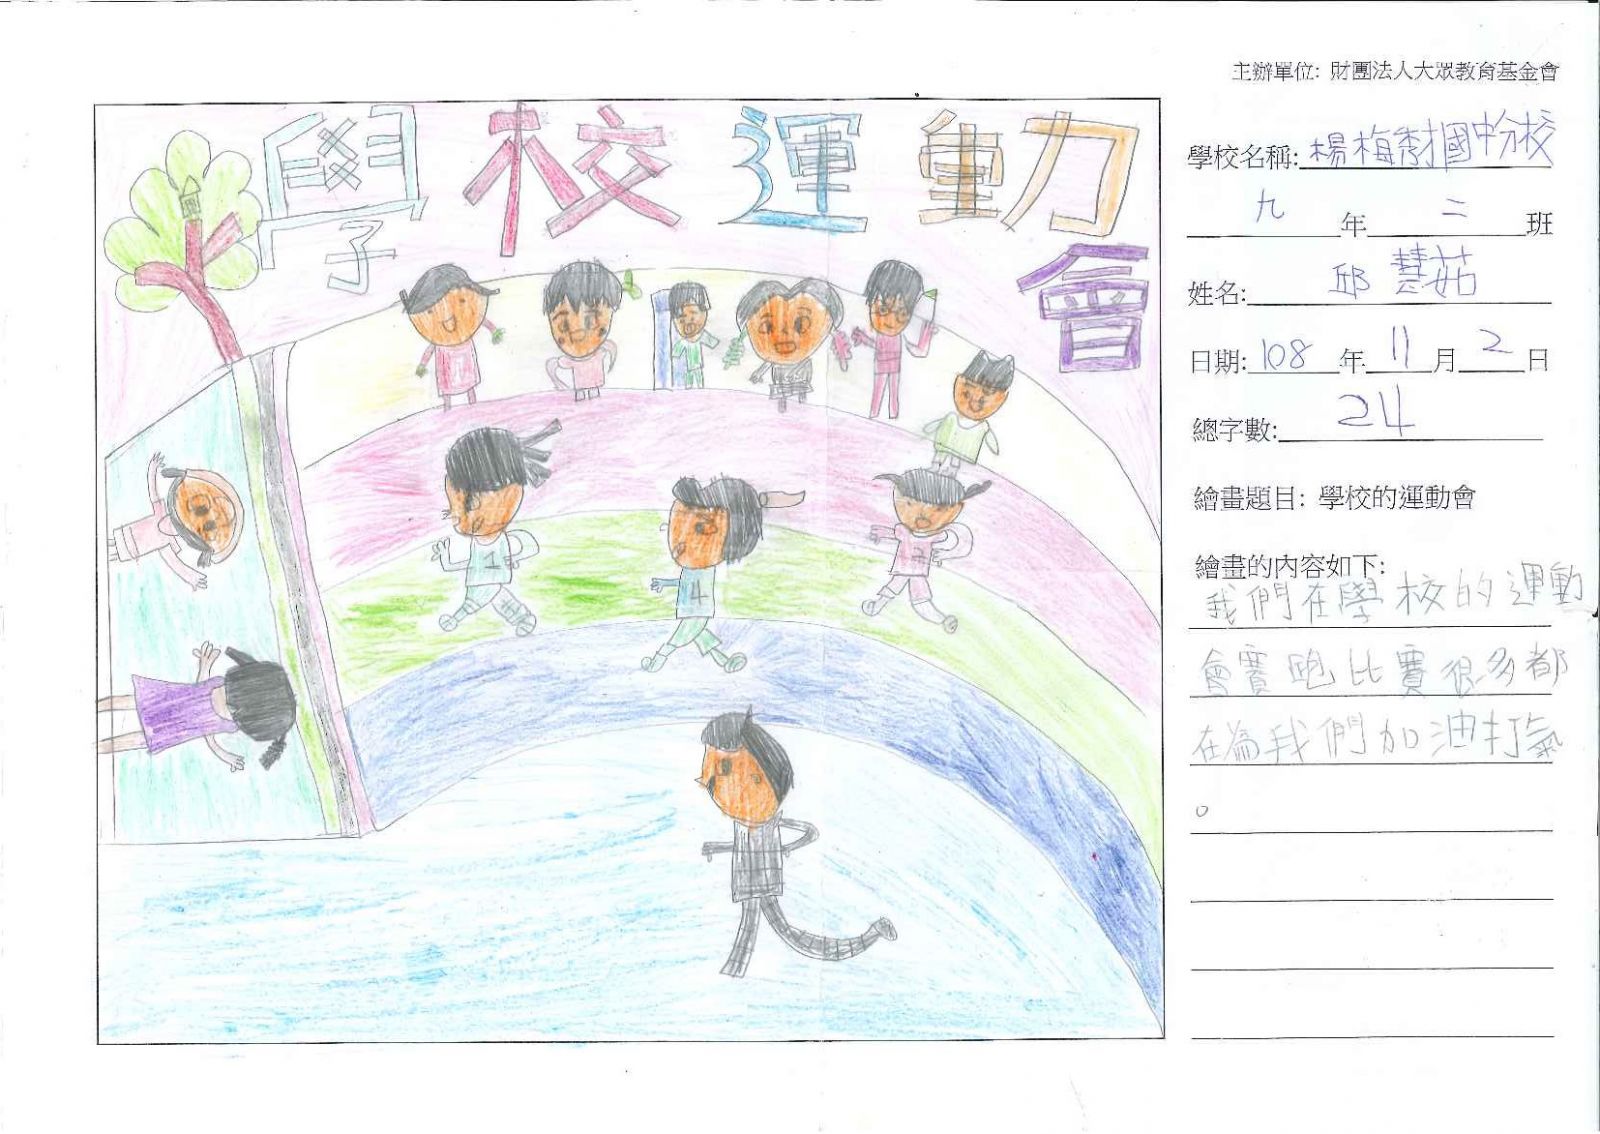 學校運動
會
1
4
2
主辦單位: 財團法人大眾教育基金會
學校名稱: 楊梅秀才國中分校
九年二班
姓名: 邱慧茹
日期: 108年11月2日
總字數: 24
繪畫題目: 學校的運動會
繪畫的內容如下:
我們在學校的運動
會賽跑比賽很多都
在為我們加油打氣
。